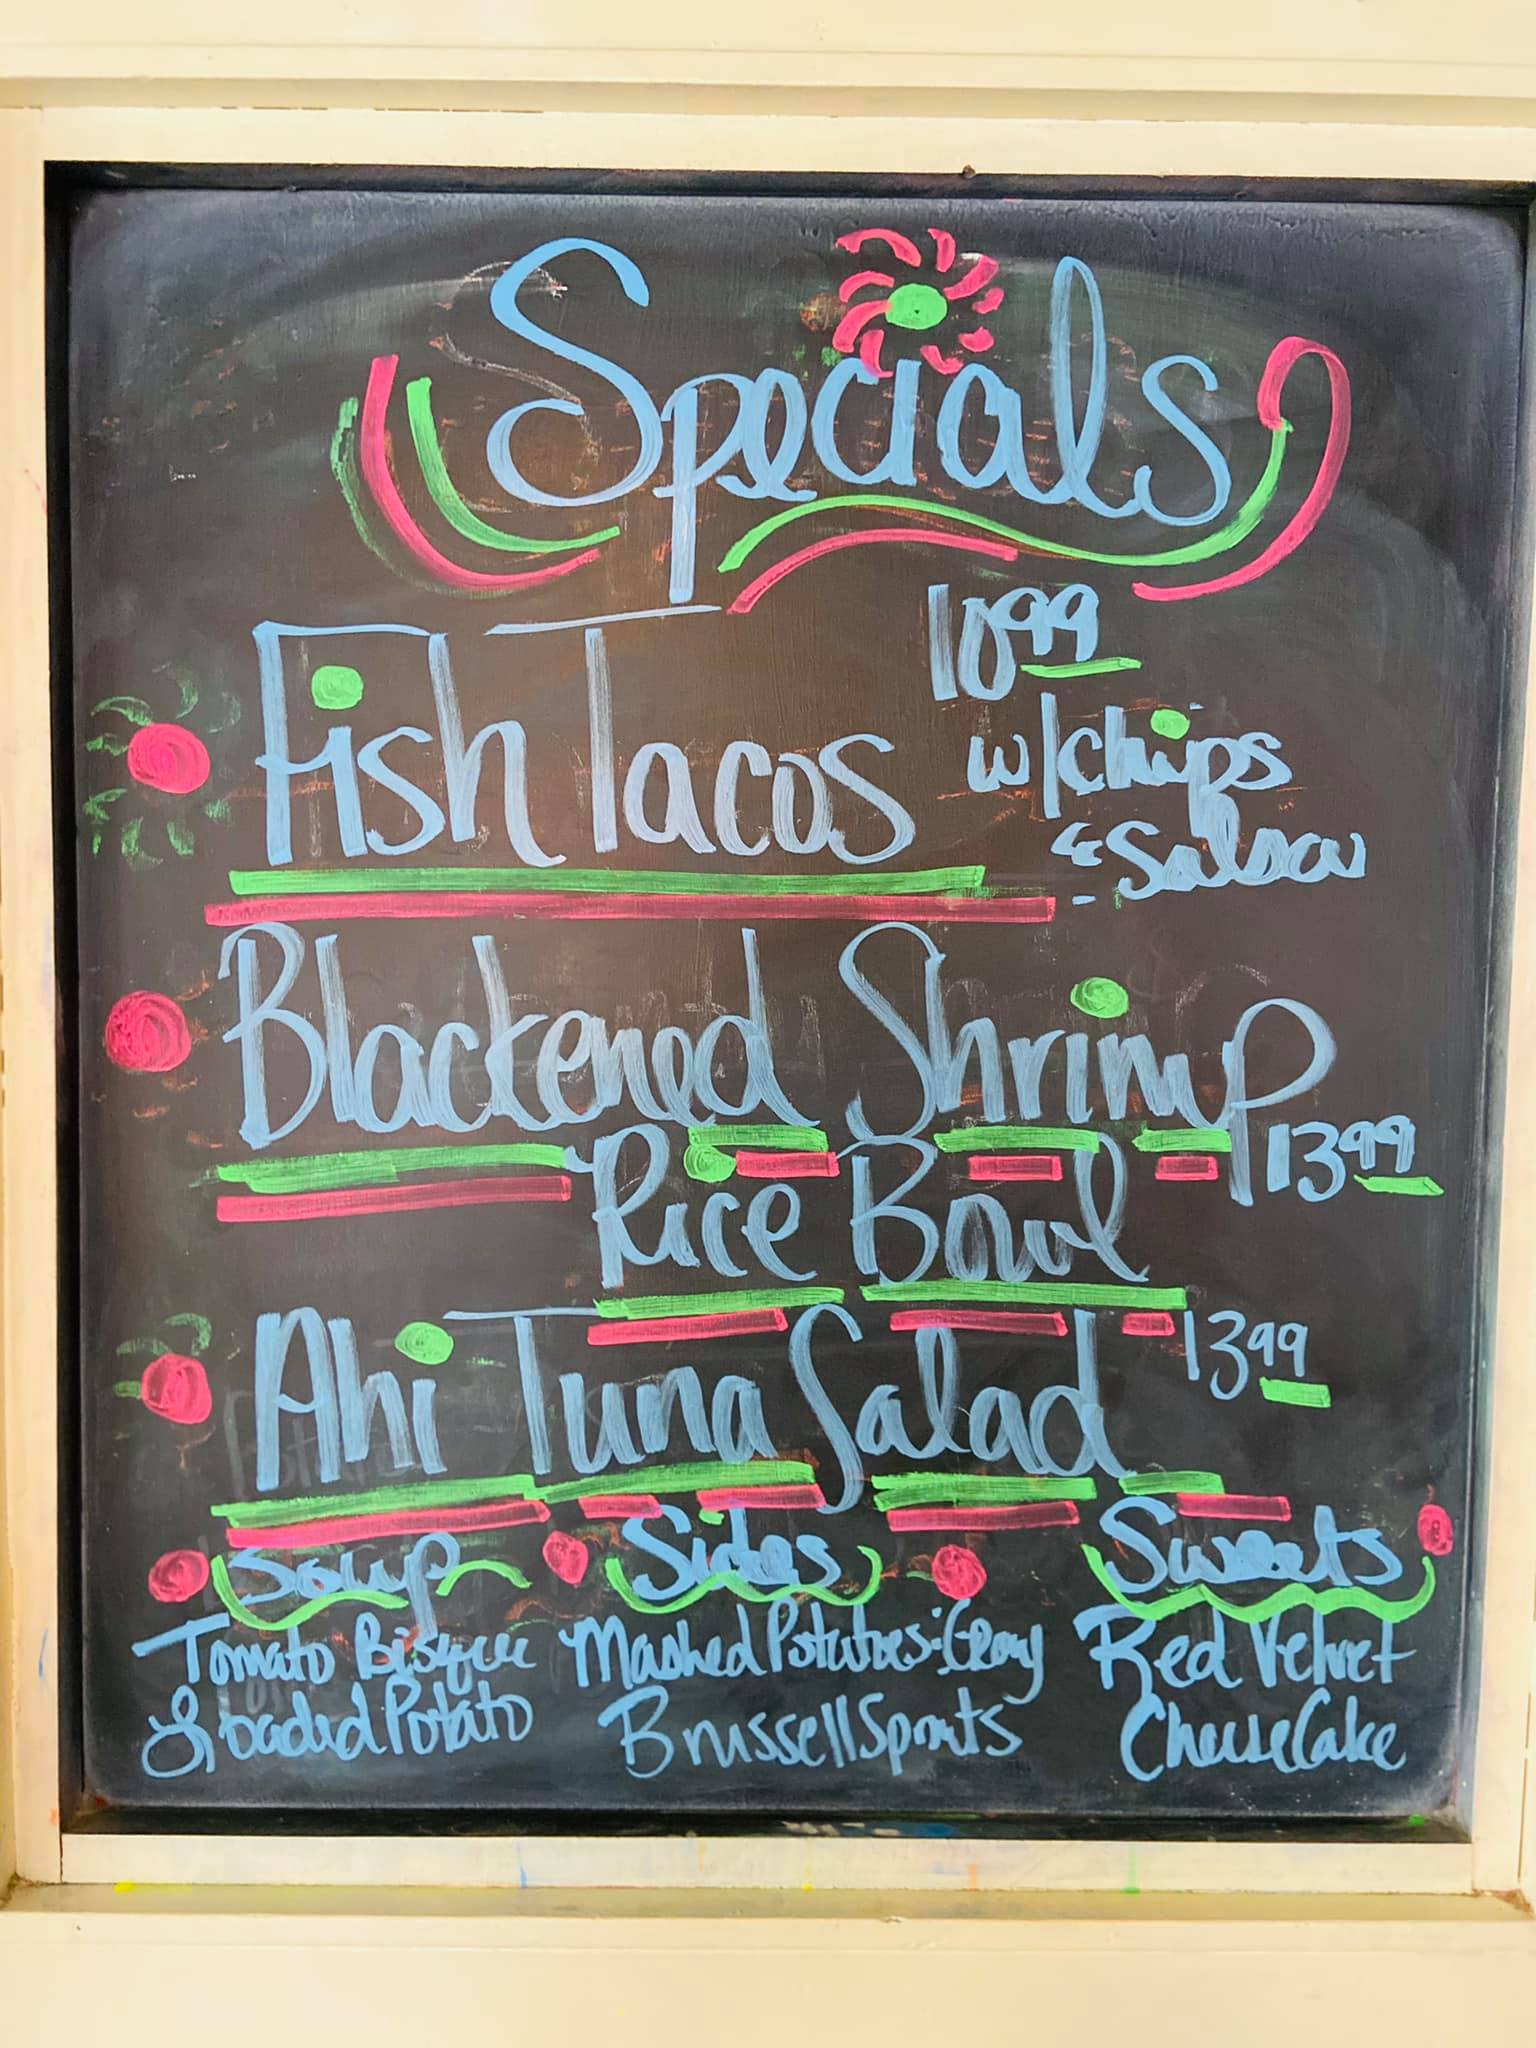 Specials
Fish Tacos 10.99
w/chips
& Salsa
Blackened Shrimp
Rice Bowl 13.99
Ahi Tuna Salad 13.99
Soup Sides Sweets
Tomato Bisque Mashed Potatoes & Gravy Red Velvet
Loaded Potato Brussell Sprouts CheeseCake